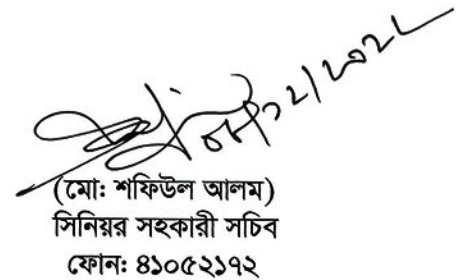 ০৮/১২/২০২২
(মো: শফিউল আলম)
সিনিয়র সহকারী সচিব
ফোন: ৪১০৫২১৭২